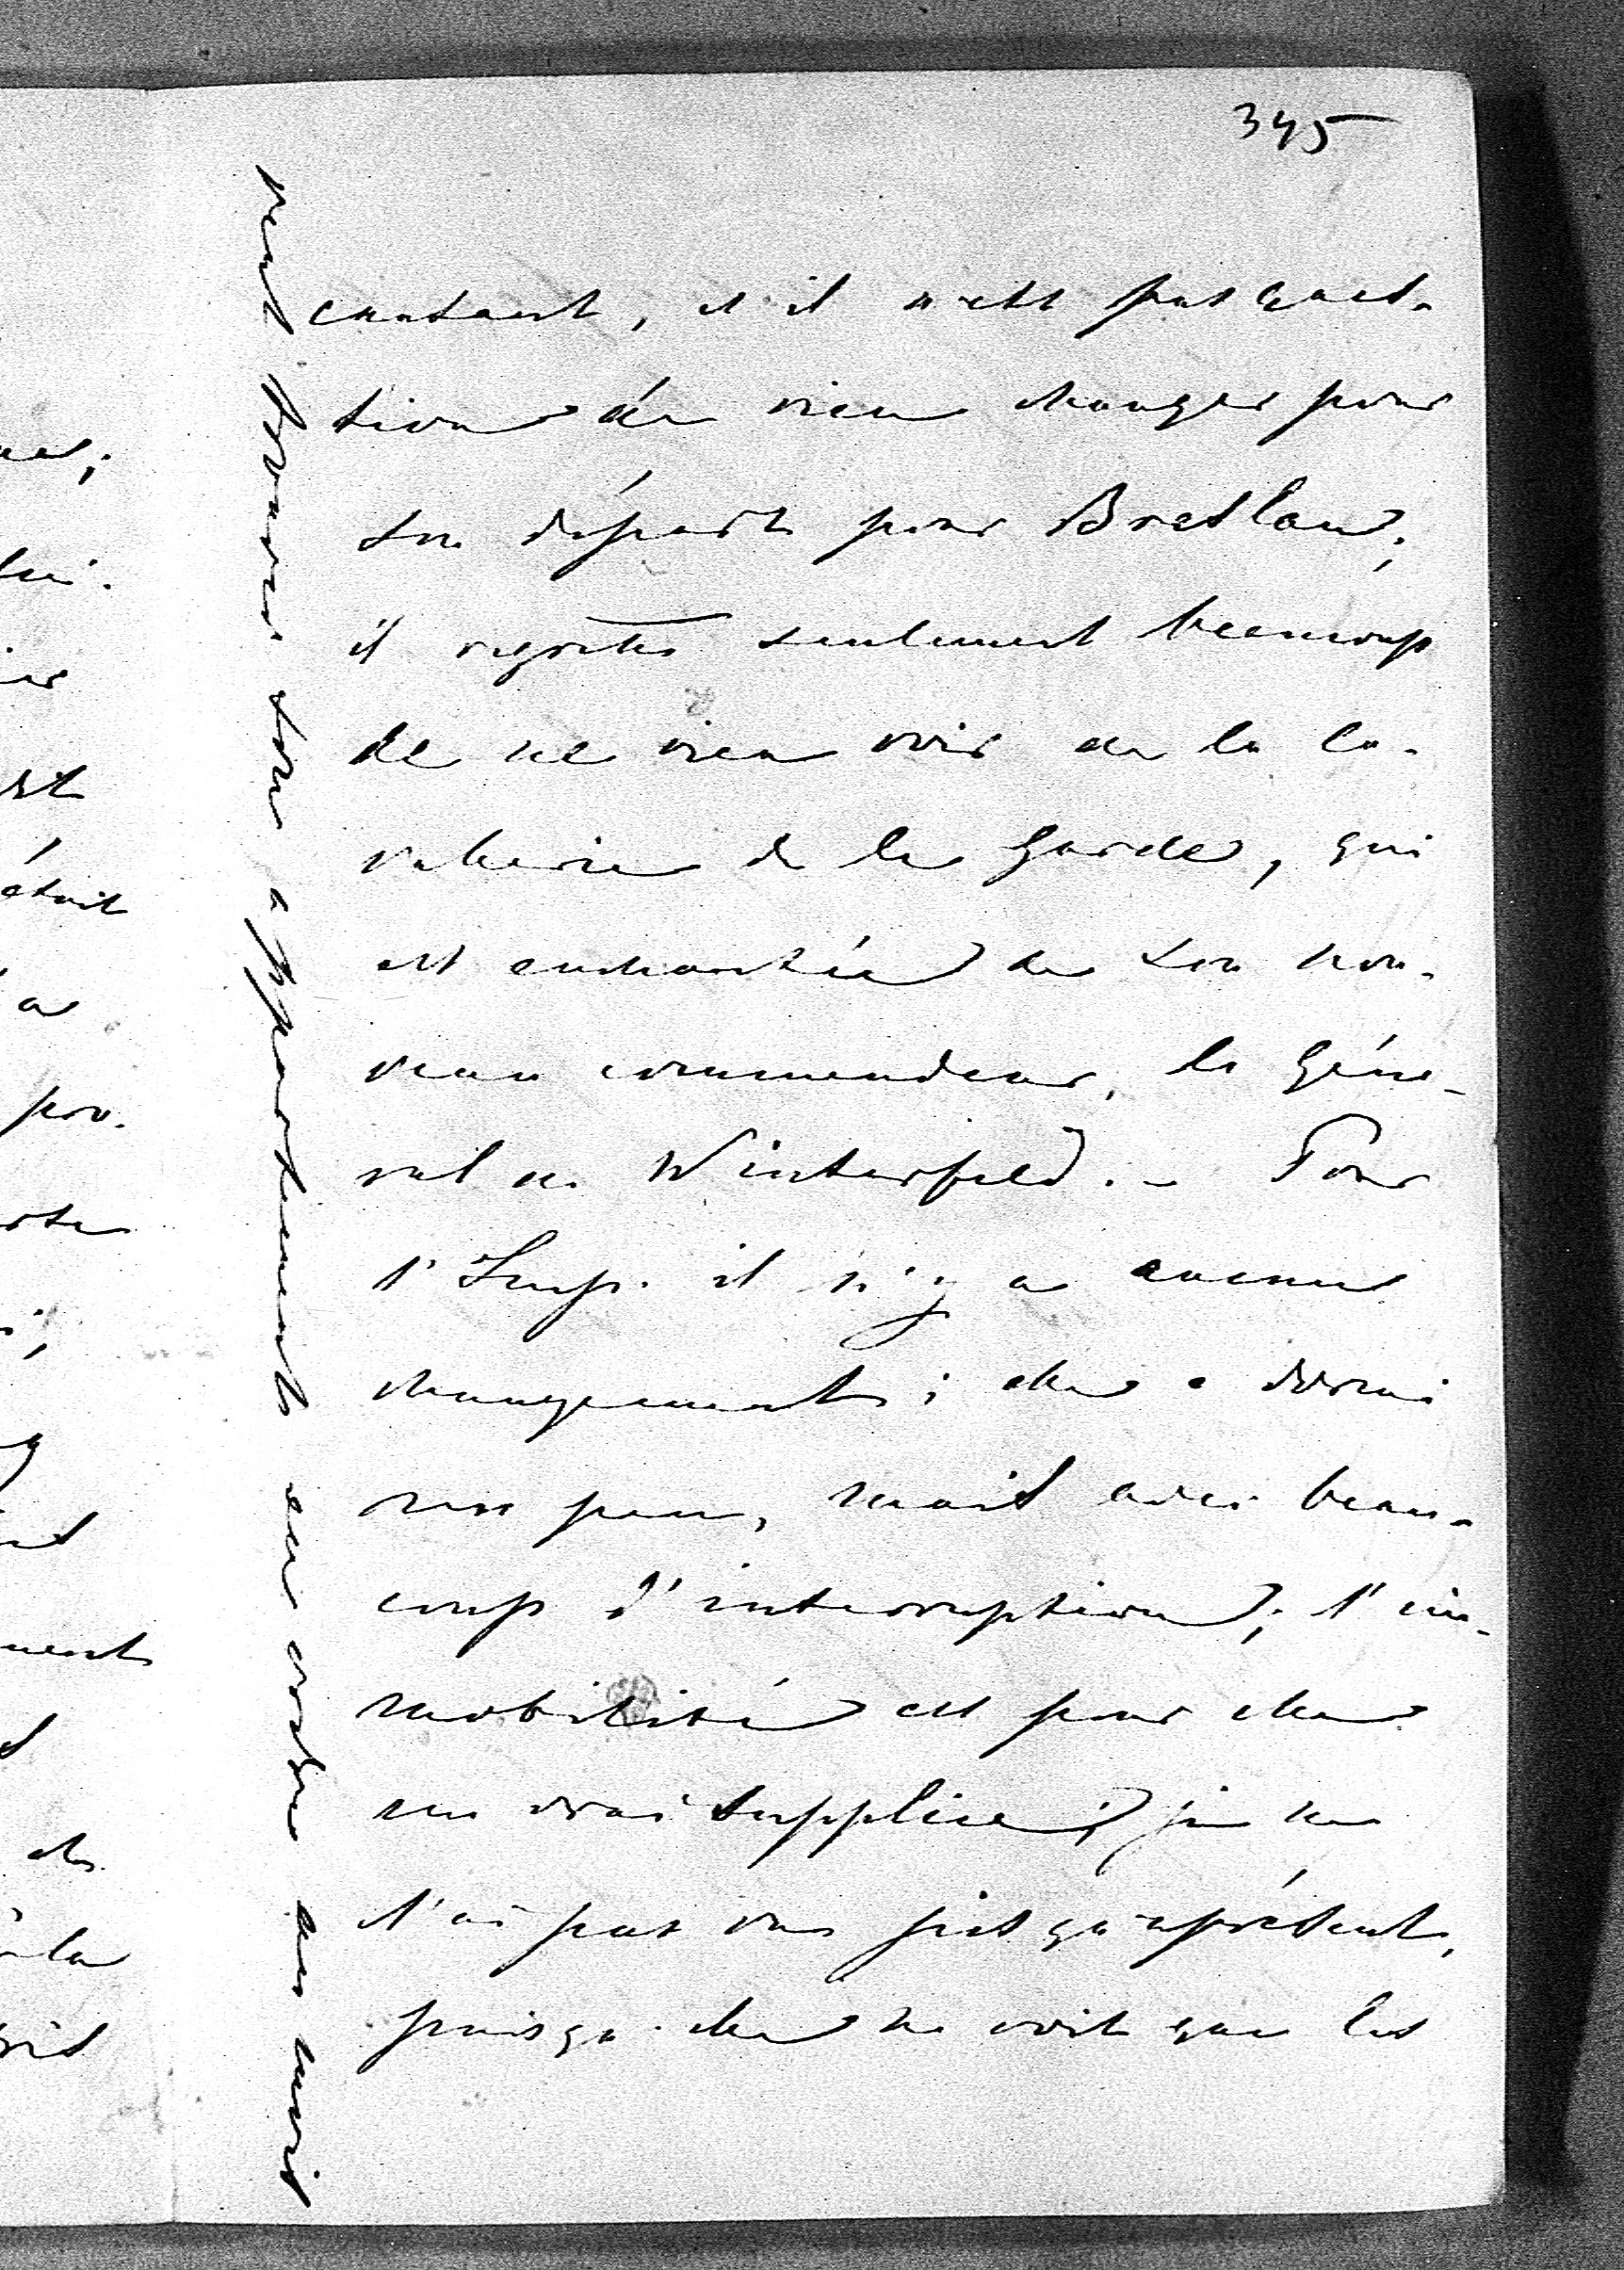 345
content, et il n'est pas ques-
tion de rien changer pour
son départ pour Breslau;
il regrette seulement beaucoup
de ne rien voir de la ca-
valerie de la Garde, qui
est enchantée de son nou-
veau commandeur, le Géné-
ral de Winterfeld. – Pour
l'Imp. il n'y a aucun
changement; elle a dormi
un peu, mais avec beau-
coup d'interruption; l'im-
mobilité est pour elle
un vrai supplice; je ne
l'ai pas vue jusqu'àprésent,
puisqu'elle ne voit que les
veut trouver son appartement en ordre au mois
ues;
lui.
était
a
pro-
ment
la